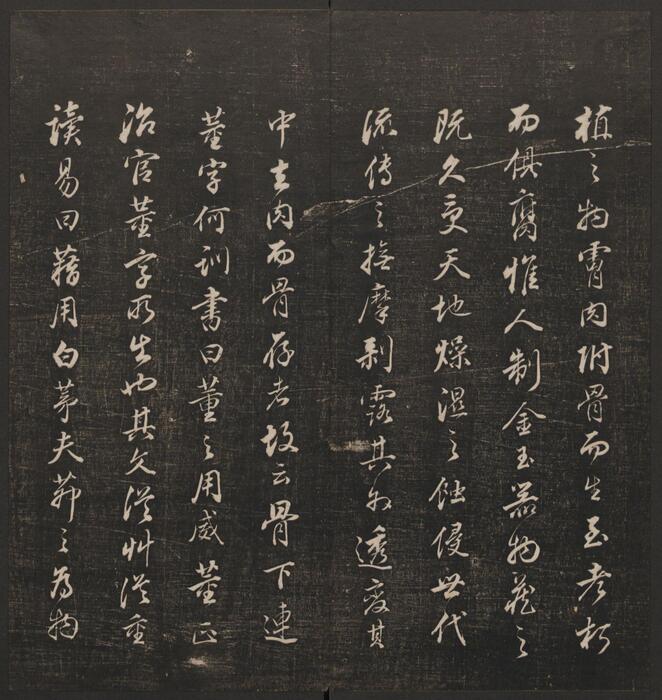 植之物霄肉附骨而生至老朽
而俱腐惟人制金玉器物藏之
既久更天地燥湿之蚀侵世代
流传之抚摩剥露其外透变其
中去肉而骨存者故云骨下连
董字何训书曰董之用威董正
治官董字所生也其文从艸从重
读易曰藉用白茅夫茅之为物